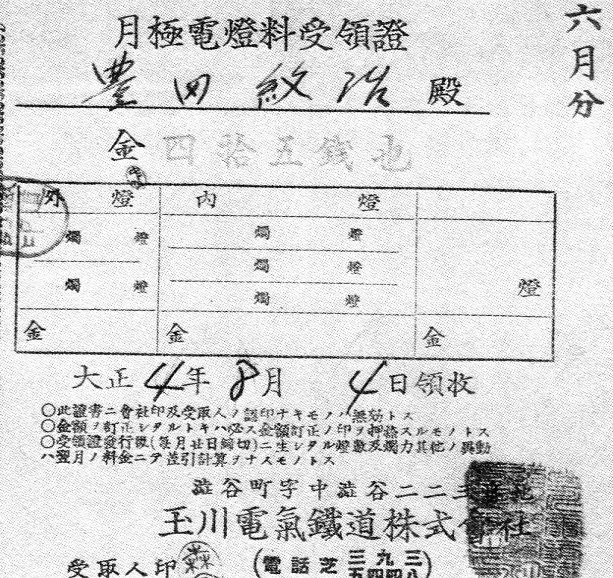 六月分
月極電燈料受領證
豊田紋治殿
金四拾五錢也
外燈 內燈
燭燈 燭燈
燭燈
燭燈 燭燈
燈
金 金 金
大正4年8月4日領收
○此證書ニ會社印及受取人ノ認印ナキモノハ無効トス
○金額ヲ訂正シタルトキハ必ス金額訂正ノ印ヲ押捺スルモノトス
○受領證發行後(每月廿日締切)ニ生シタル燈數及燭力其他ノ異動
ハ翌月ノ料金ニテ差引計算ヲナスモノトス
澁谷町字中澁谷二二三番地
玉川電氣鐵道株式會社
受取人印 (電話芝